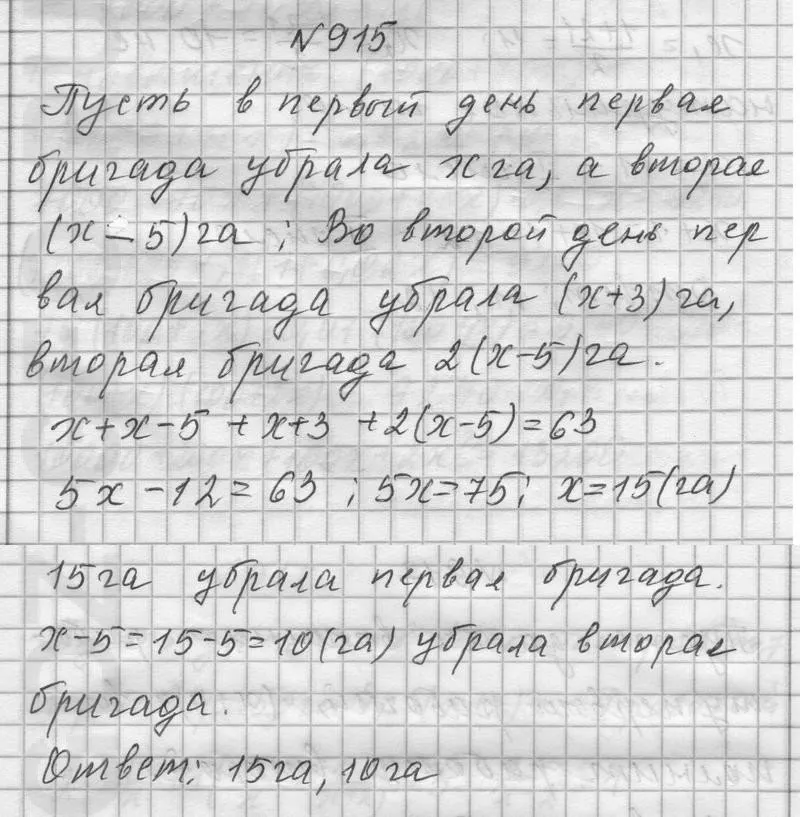 N 915
Пусть в первый день первая
бригада убрала x га, а вторая
(x - 5) га ; Во второй день пер
вая бригада убрала (x+3) га,
вторая бригада 2(x-5) га.
x+x-5 +x+3 +2(x-5)=63
5x -12= 63 ; 5x=75; x=15(га)
15га убрала первая бригада.
x-5=15-5=10(га) убрала вторая
бригада.
Ответ: 15га, 10га